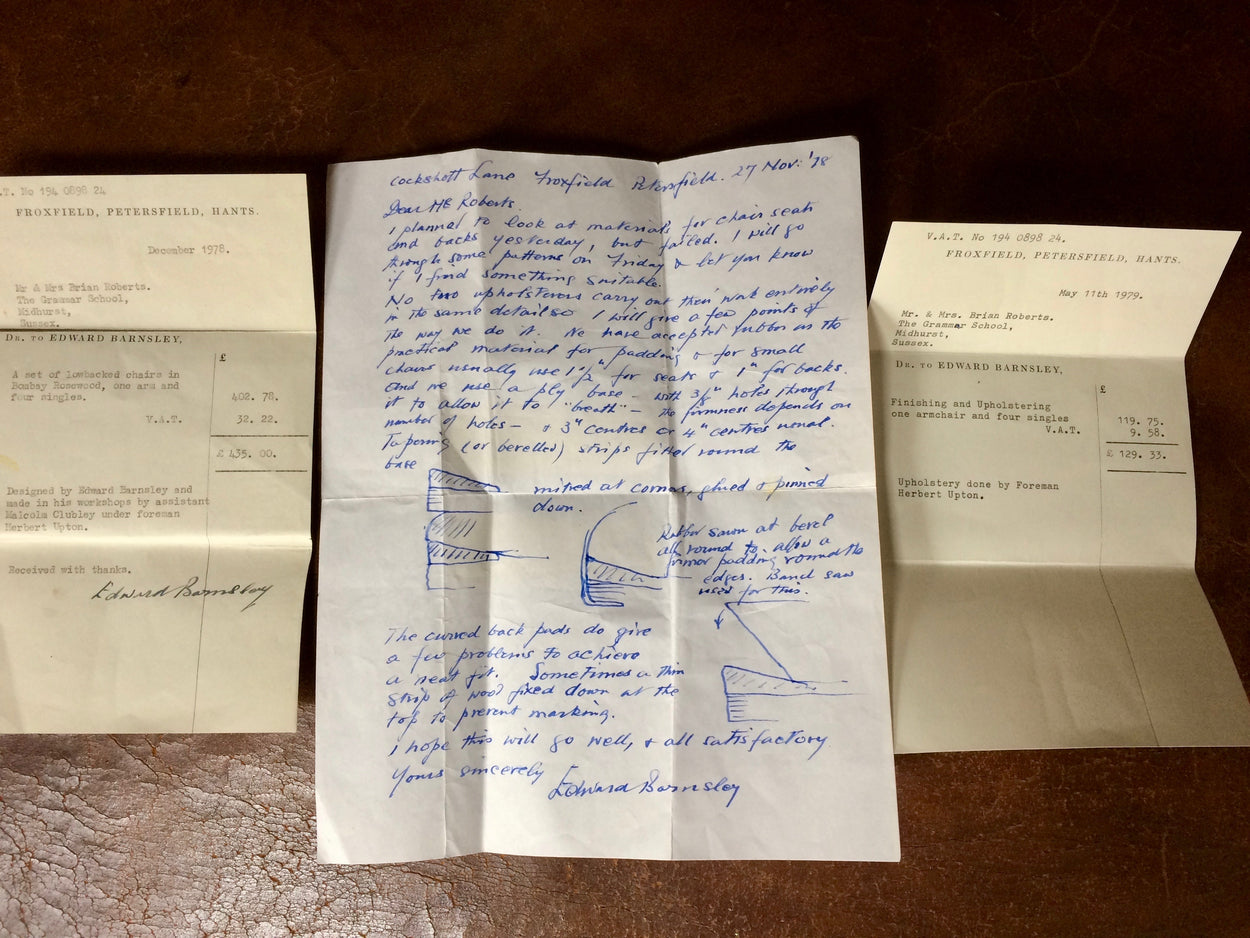 .T. No 194 0898 24
FROXFIELD, PETERSFIELD, HANTS.
December 1978.
Mr & Mrs Brian Roberts.
The Grammar School,
Midhurst,
Sussex.
DR. TO EDWARD BARNSLEY,
£
A set of lowbacked chairs in
Bombay Rosewood, one arm and
four singles.
402. 78.
V.A.T.
32. 22.
£ 435. 00.
Designed by Edward Barnsley and
made in his workshops by assistant
Malcolm Clubley under foreman
Herbert Upton.
Received with thanks.
Edward Barnsley
Cockshott Lane Froxfield Petersfield. 27 Nov: '78
Dear Mr Roberts.
I planned to look at materials for chair seats
and backs yesterday, but failed. I will go
through some patterns on Friday & let you know
if I find something suitable.
No two upholsterers carry out their work entirely
in the same detail so I will give a few points of
the way we do it. We have accepted rubber as the
practical material for padding & for small
chairs usually use 1½" for seats & 1" for backs.
and we use a ply base - with 3/4" holes through
it to allow it to "breath" - the firmness depends on
number of holes - & 3" centres or 4" centres usual.
Tapering (or bevelled) strips fitted round the
base
mitred at corners, glued & pinned
down.
Rubber sawn at bevel
all round to allow a
firmer padding round the
edges. Band saw
used for this.
The curved back pads do give
a few problems to achieve
a neat fit. Sometimes a thin
strip of wood fixed down at the
top to prevent marking.
I hope this will go well, & all satisfactory.
Yours sincerely
Edward Barnsley
V.A.T. No 194 0898 24.
FROXFIELD, PETERSFIELD, HANTS.
May 11th 1979.
Mr. & Mrs. Brian Roberts.
The Grammar School,
Midhurst,
Sussex.
DR. TO EDWARD BARNSLEY,
£
Finishing and Upholstering
one armchair and four singles
119. 75.
V.A.T.
9. 58.
£ 129. 33.
Upholstery done by Foreman
Herbert Upton.